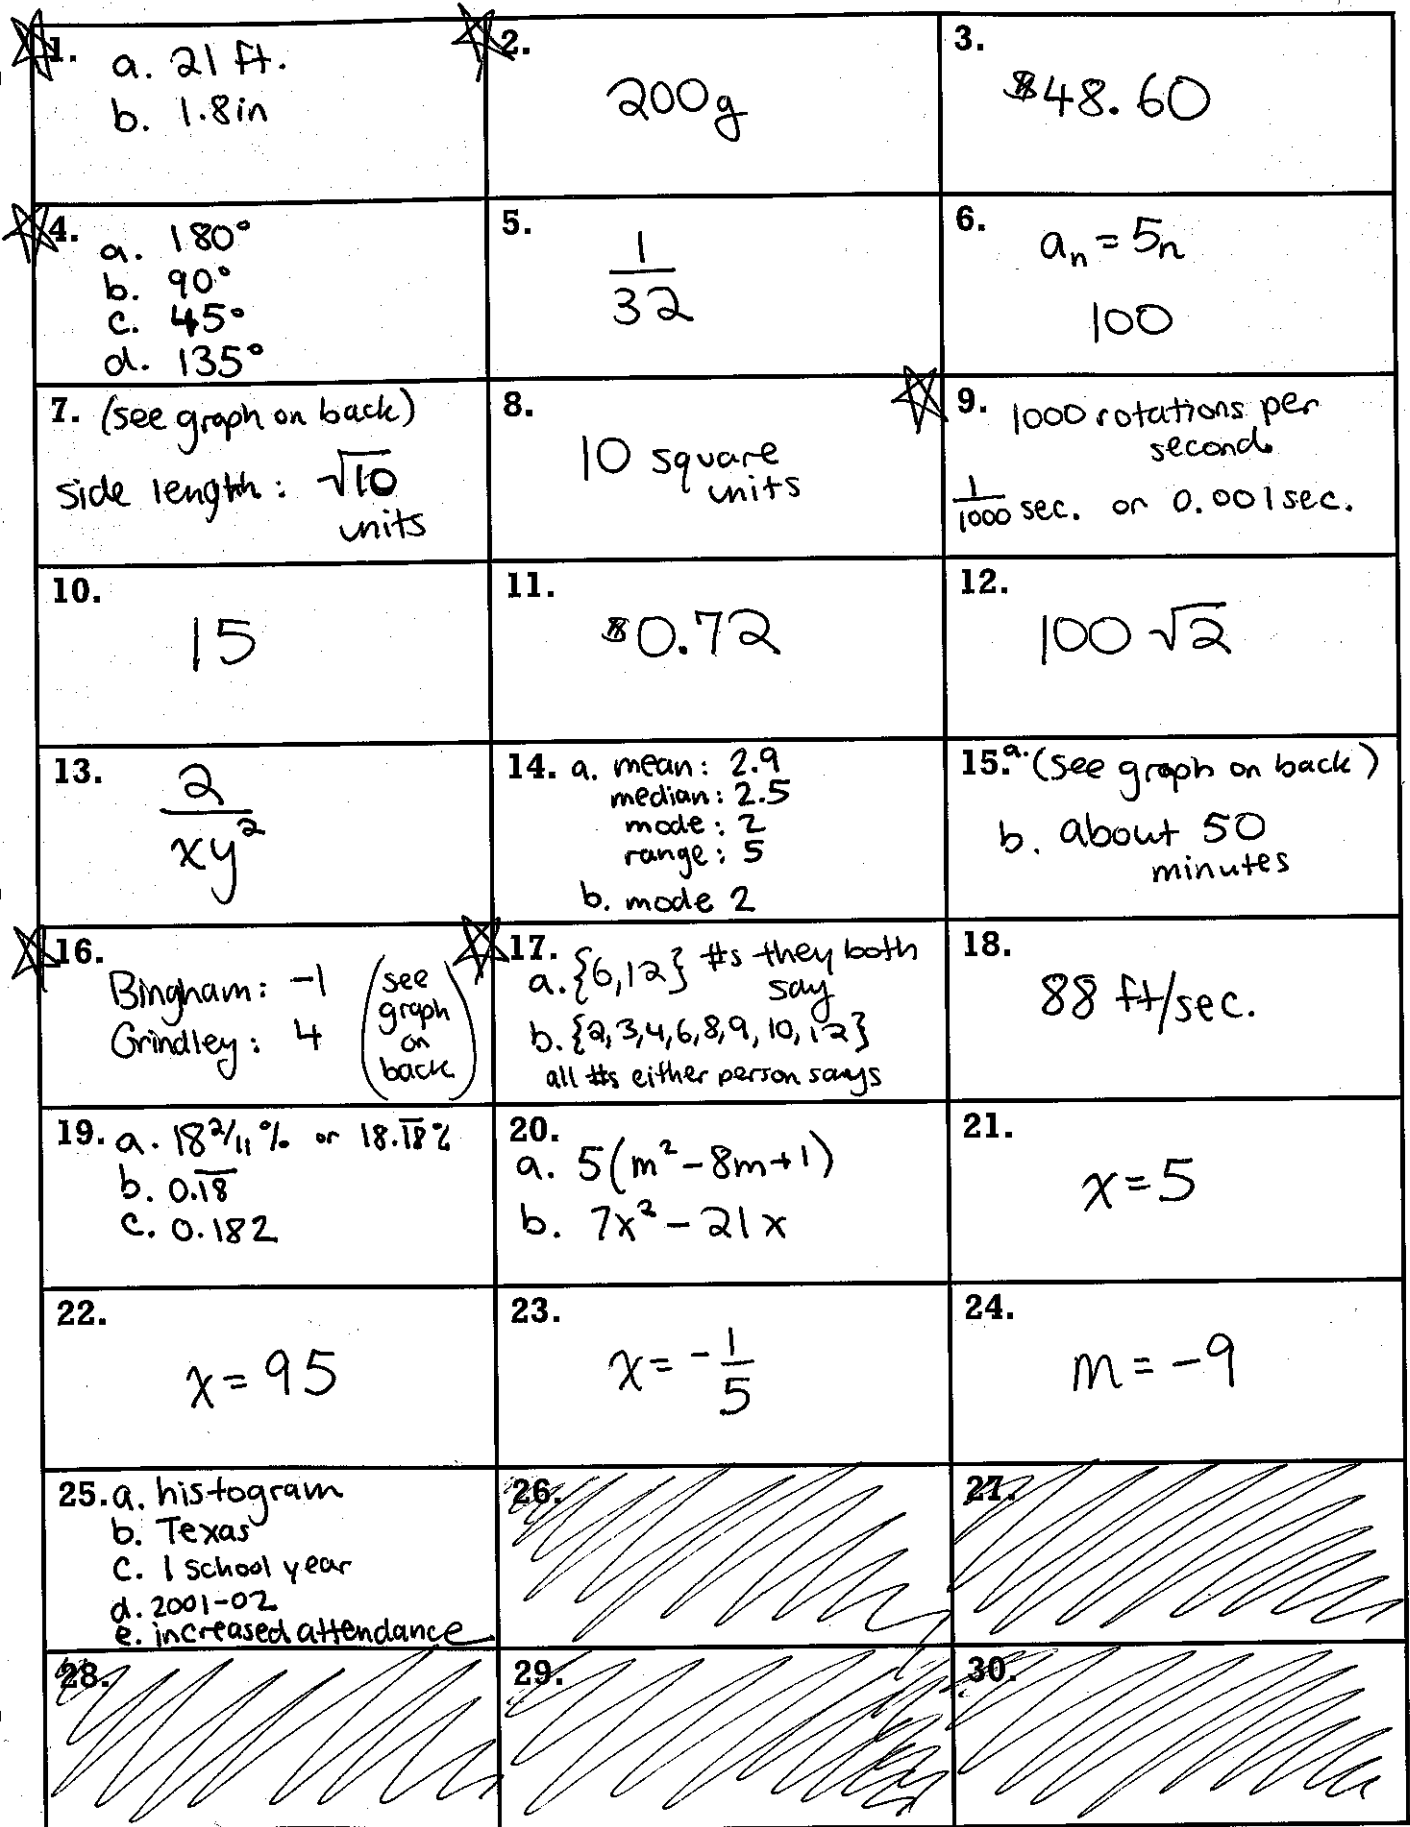 1. a. 21 ft.
b. 1.8in
2.
200g
3.
$48.60
4. a. 180°
b. 90°
c. 45°
d. 135°
5.
1/32
6. aₙ = 5n
100
7. (see graph on back)
side length: √10
units
8.
10 square
units
9. 1000 rotations per
second.
1/1000 sec. or 0.001 sec.
10.
15
11.
$0.72
12.
100 √2
13.
2/xy²
14. a. mean: 2.9
median: 2.5
mode: 2
range: 5
b. mode 2
15. a. (see graph on back)
b. about 50
minutes
16.
Bingham: -1
Grindley: 4
(see
graph
on
back)
17.
a. {6,12} #s they both
say
b. {2,3,4,6,8,9,10,12}
all #s either person says
18.
88 ft/sec.
19. a. 18 2/11 % or 18.1̅8̅%
b. 0.1̅8̅
c. 0.182
20.
a. 5(m²-8m+1)
b. 7x²-21x
21.
x=5
22.
x=95
23.
x=-1/5
24.
m=-9
25. a. histogram
b. Texas
c. 1 school year
d. 2001-02
e. increased attendance
26.
27.
28.
29.
30.